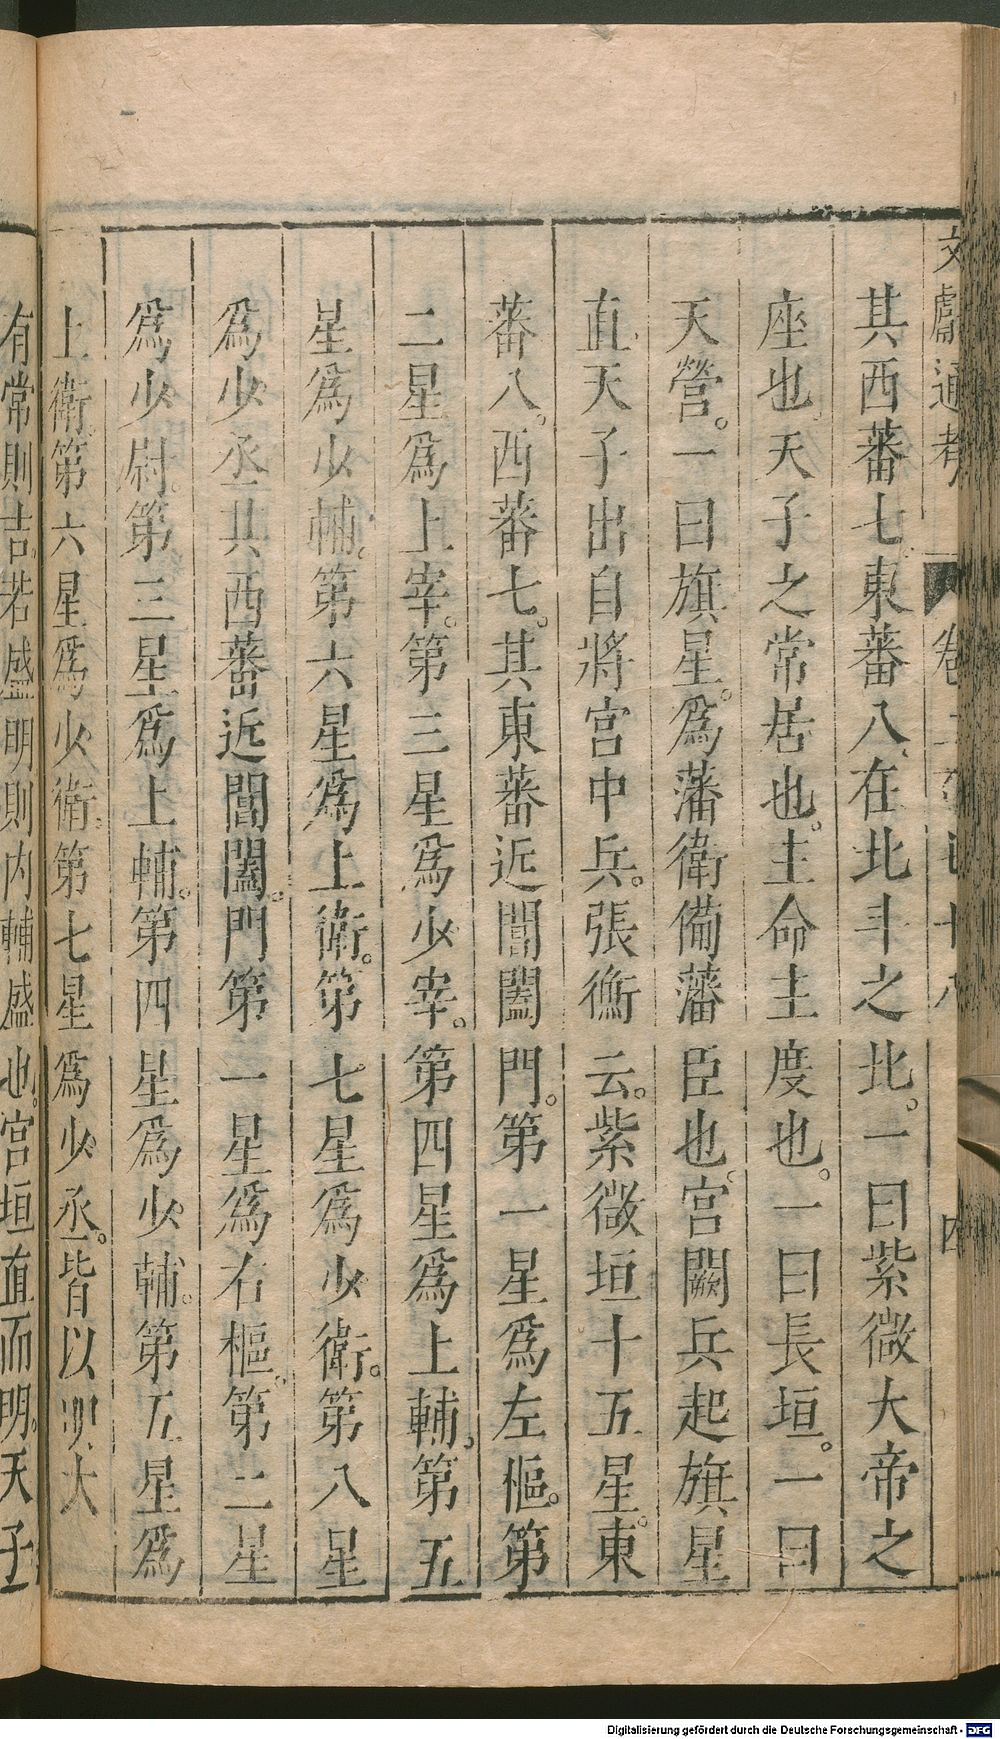 文獻通考 卷二百七十八 四
其西蕃七東蕃八在北斗之北。一曰紫微大帝之
座也。天子之常居也。主命主度也。一曰長垣。一曰
天營。一曰旗星。爲藩衛備藩臣也。宮闕兵起旗星
直天子出自將宮中兵。張衡云。紫微垣十五星。東
蕃八。西蕃七。其東蕃近閶闔門。第一星爲左樞。第
二星爲上宰。第三星爲少宰。第四星爲上輔。第五
星爲少輔。第六星爲上衛。第七星爲少衛。第八星
爲少丞其西蕃近閶闔。門第一星爲右樞。第二星
爲少尉。第三星爲上輔。第四星爲少輔。第五星爲
上衛。第六星爲少衛。第七星爲少丞。皆以明大
有常則吉。若盛明則内輔盛也。宮垣直而明。天子
Digitalisierung gefördert durch die Deutsche Forschungsgemeinschaft - DFG